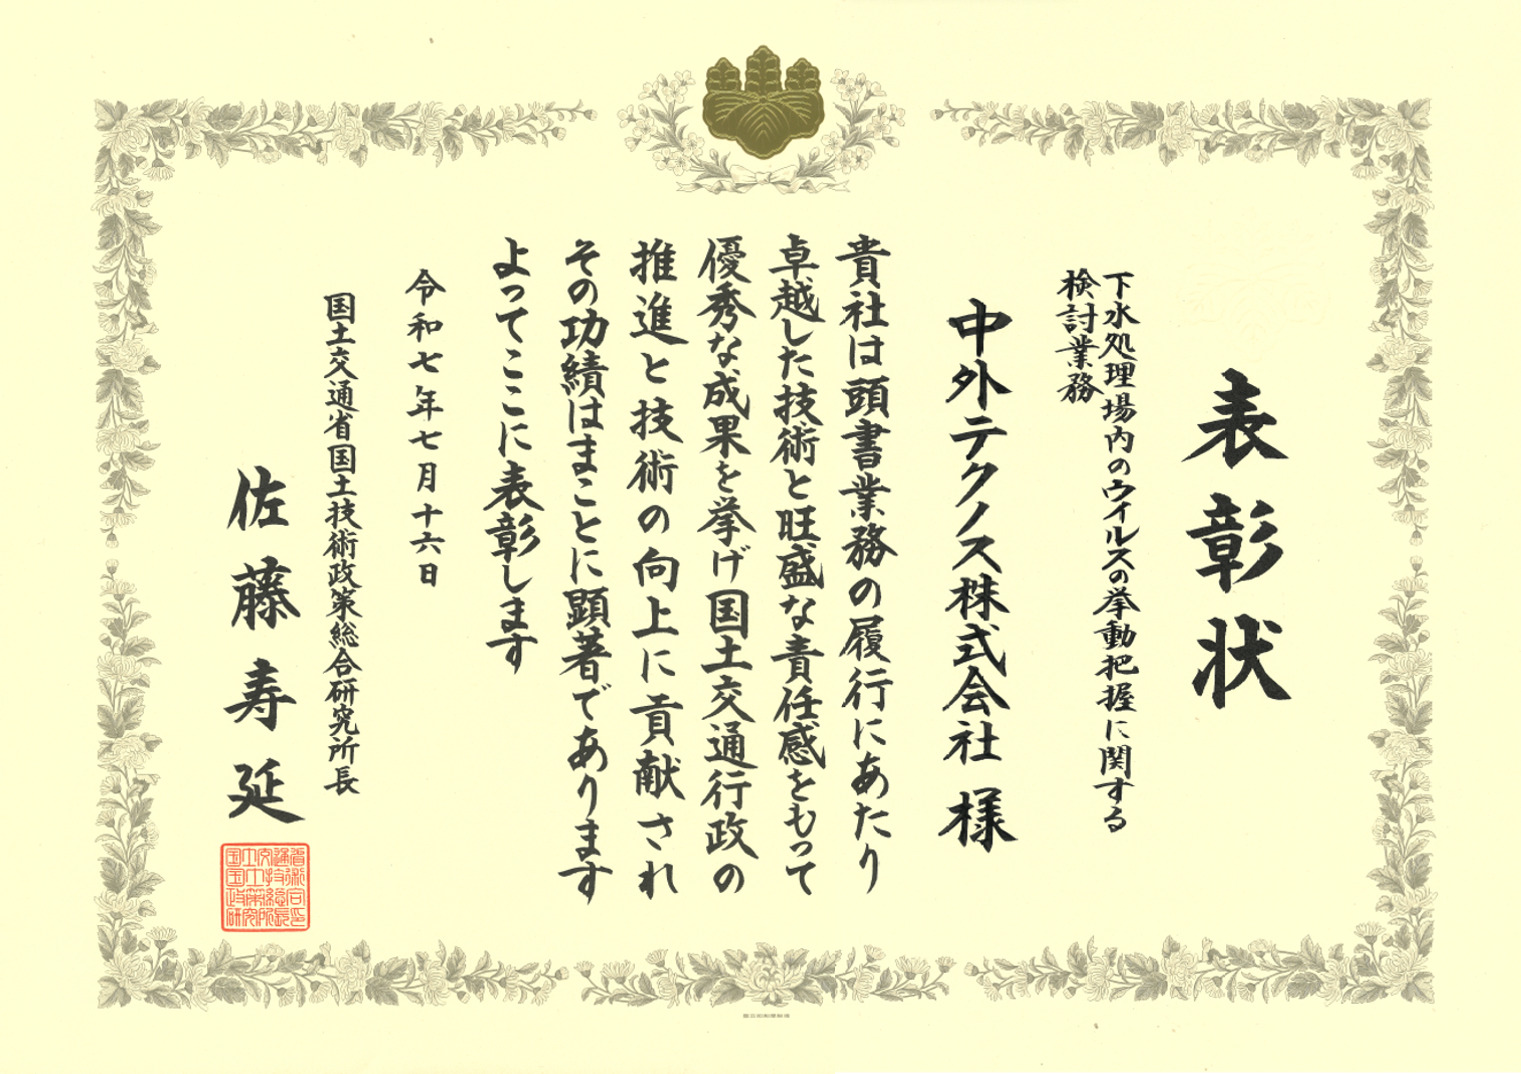 表彰状
下水処理場内のウイルスの挙動把握に関する
検討業務
中外テクノス株式会社 様
貴社は頭書業務の履行にあたり
卓越した技術と旺盛な責任感をもって
優秀な成果を挙げ国土交通行政の
推進と技術の向上に貢献され
その功績はまことに顕著であります
よってここに表彰します
令和七年七月十六日
国土交通省国土技術政策総合研究所長
佐藤寿延